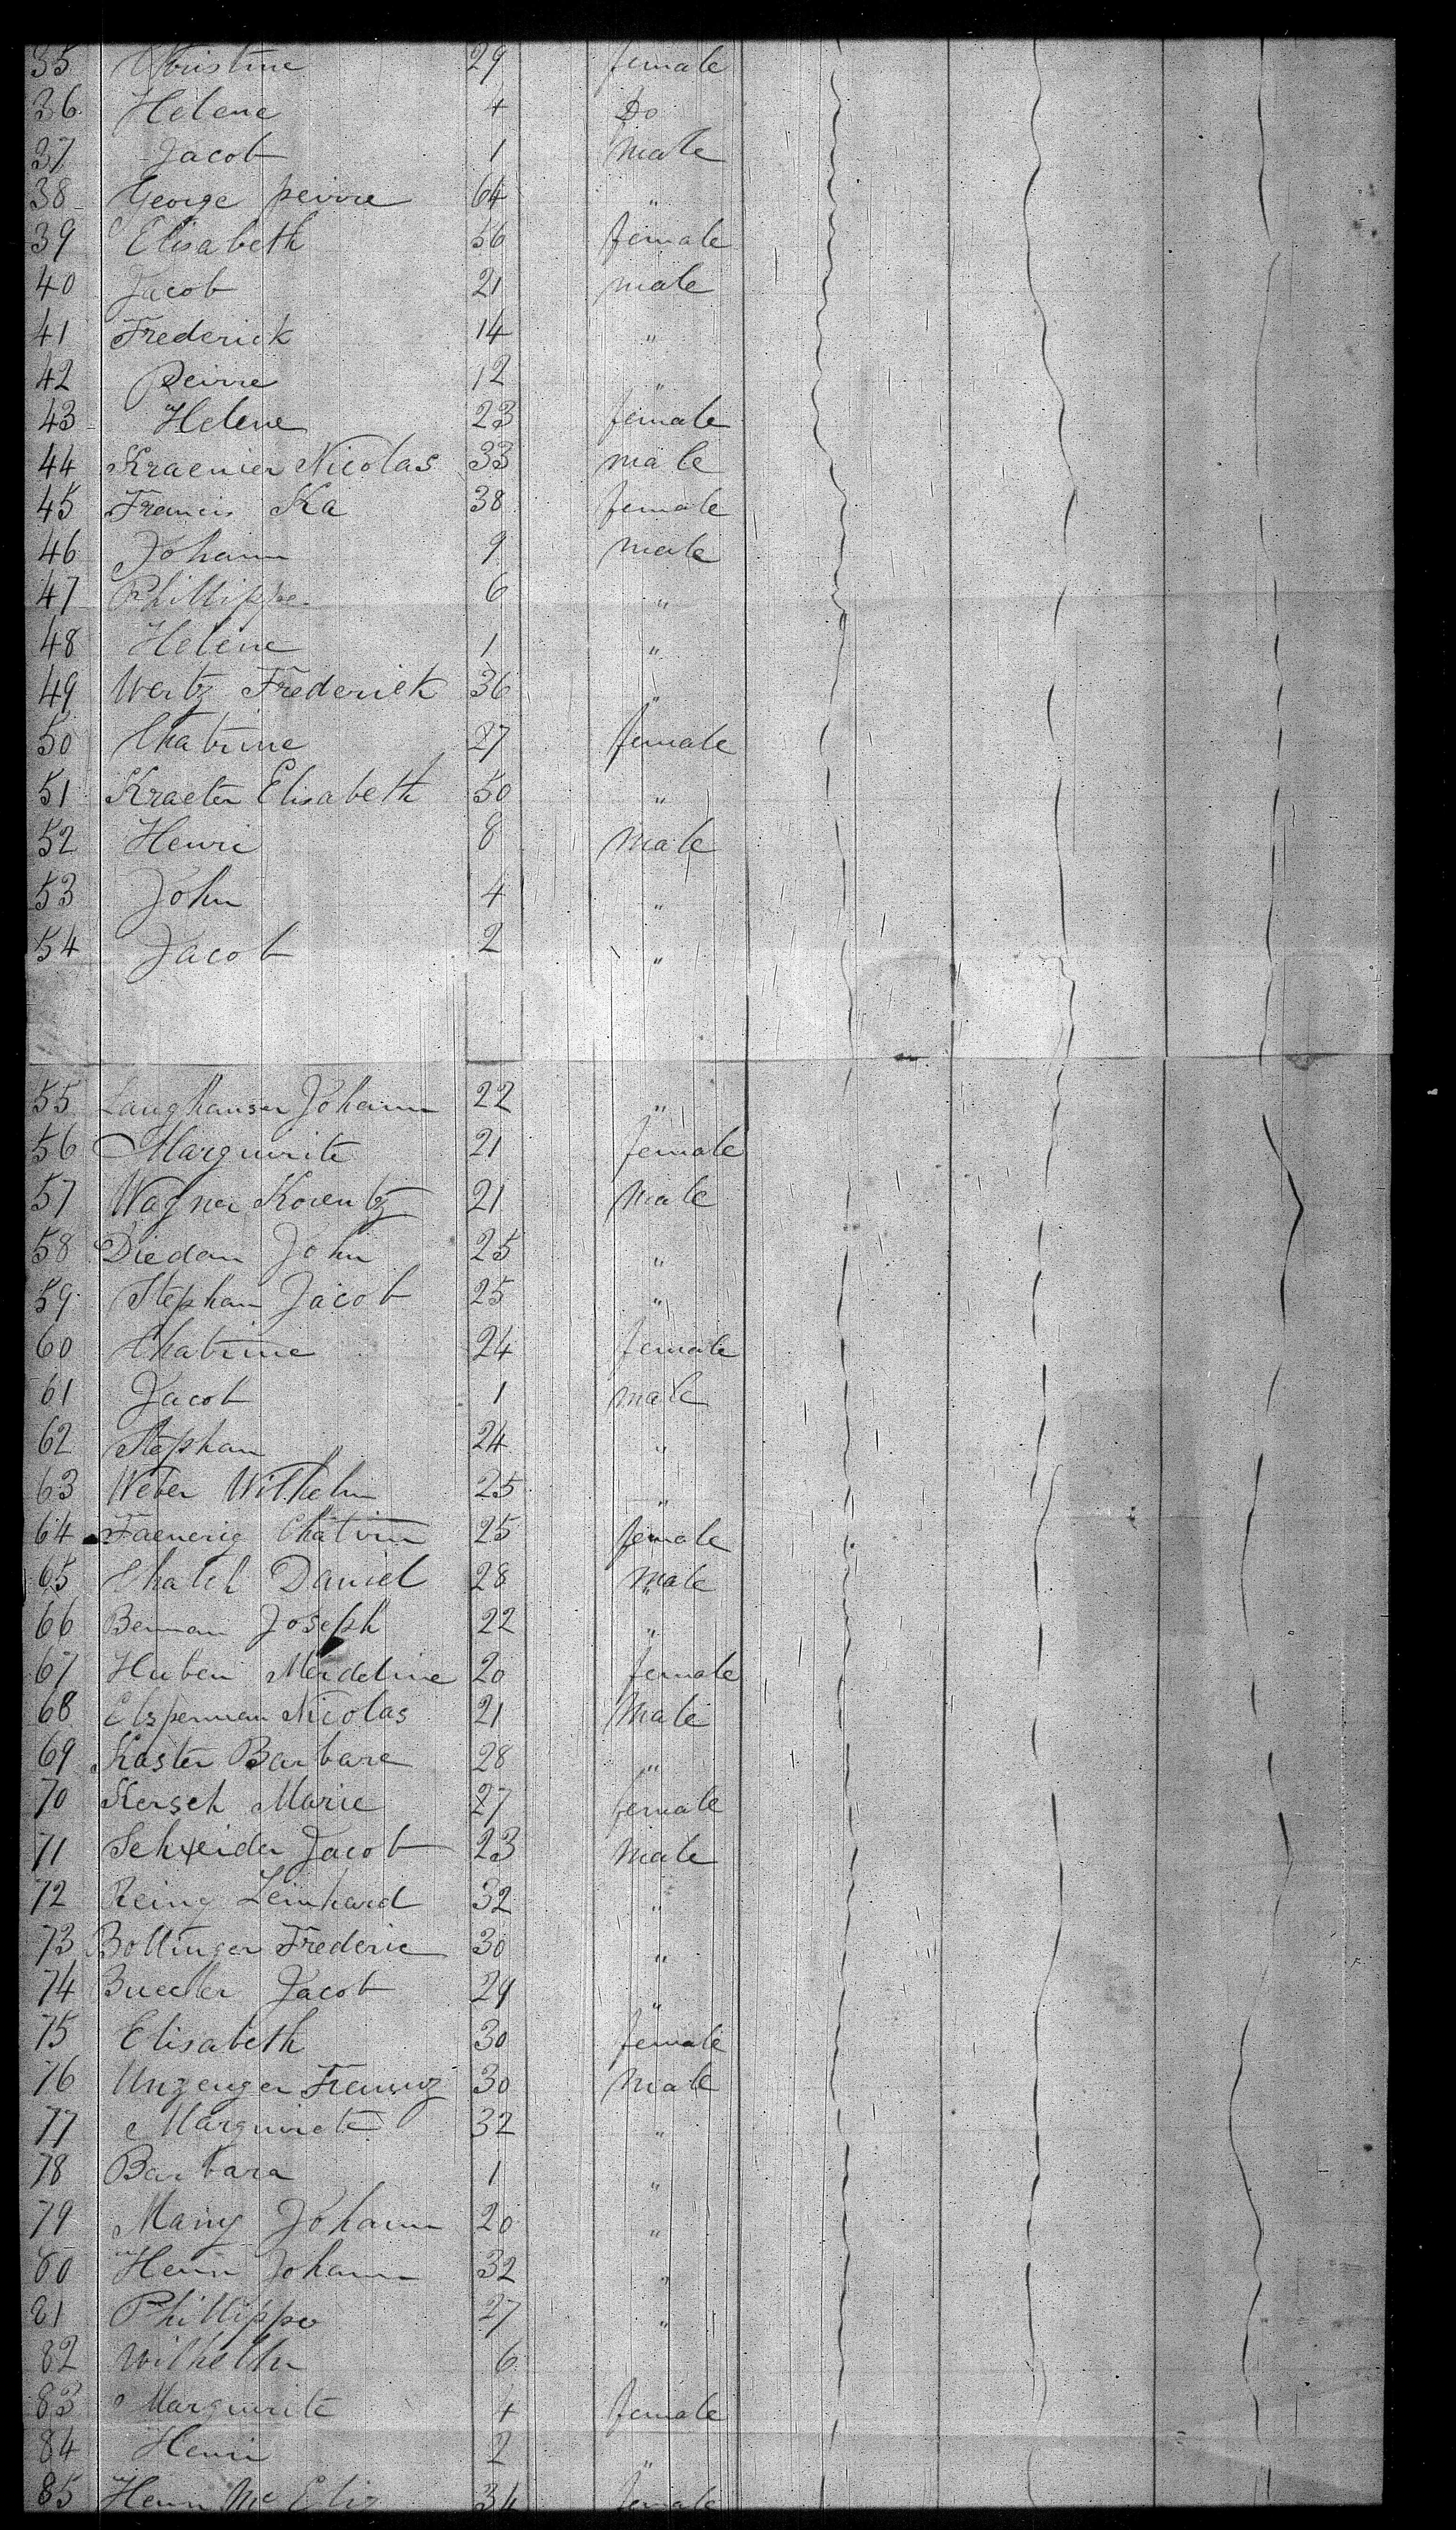 35 Christine 29 female
36 Helene 4 Do
37 Jacob 1 male
38 George peirre 64 "
39 Elisabeth 56 female
40 Jacob 21 male
41 Frederick 14 "
42 Peirre 12 "
43 Helene 23 female
44 Kraemer Nicolas 33 male
45 Francis Ka 38 female
46 Johann 9 male
47 Phillippe 6 "
48 Helene 1 "
49 Wertz Frederick 36 "
50 Chatrine 27 female
51 Kraeter Elisabeth 50 "
52 Henri 8 male
53 John 4 "
54 Jacob 2 "
55 Langhauser Johann 22 "
56 Marguerite 21 female
57 Wagner 21 male
58 Diedam John 25 "
59 Stephan Jacob 25 "
60 Chatrine 24 female
61 Jacob 1 male
62 Stephan 24 "
63 Weber Wilhelm 25 "
64 Chatrin 25 female
65 Daniel 28 male
66 Joseph 22 "
67 Huber Madeline 20 female
68 Elsperman Nicolas 21 Male
69 Kaster Barbare 28 "
70 Kersch Marie 27 female
71 Schneider Jacob 23 male
72 Reing Leinhard 32 "
73 Bollinger Frederic 30 "
74 Buecler Jacob 29 "
75 Elisabeth 30 female
76 30 male
77 Marguirete 32 "
78 Barbara 1 "
79 Many Johann 20 "
80 Henn Johann 32 "
81 Phillippe 27 "
82 Wilhelm 6
83 Marguerite 4 female
84 Henri 2 "
85 Henn 34 female